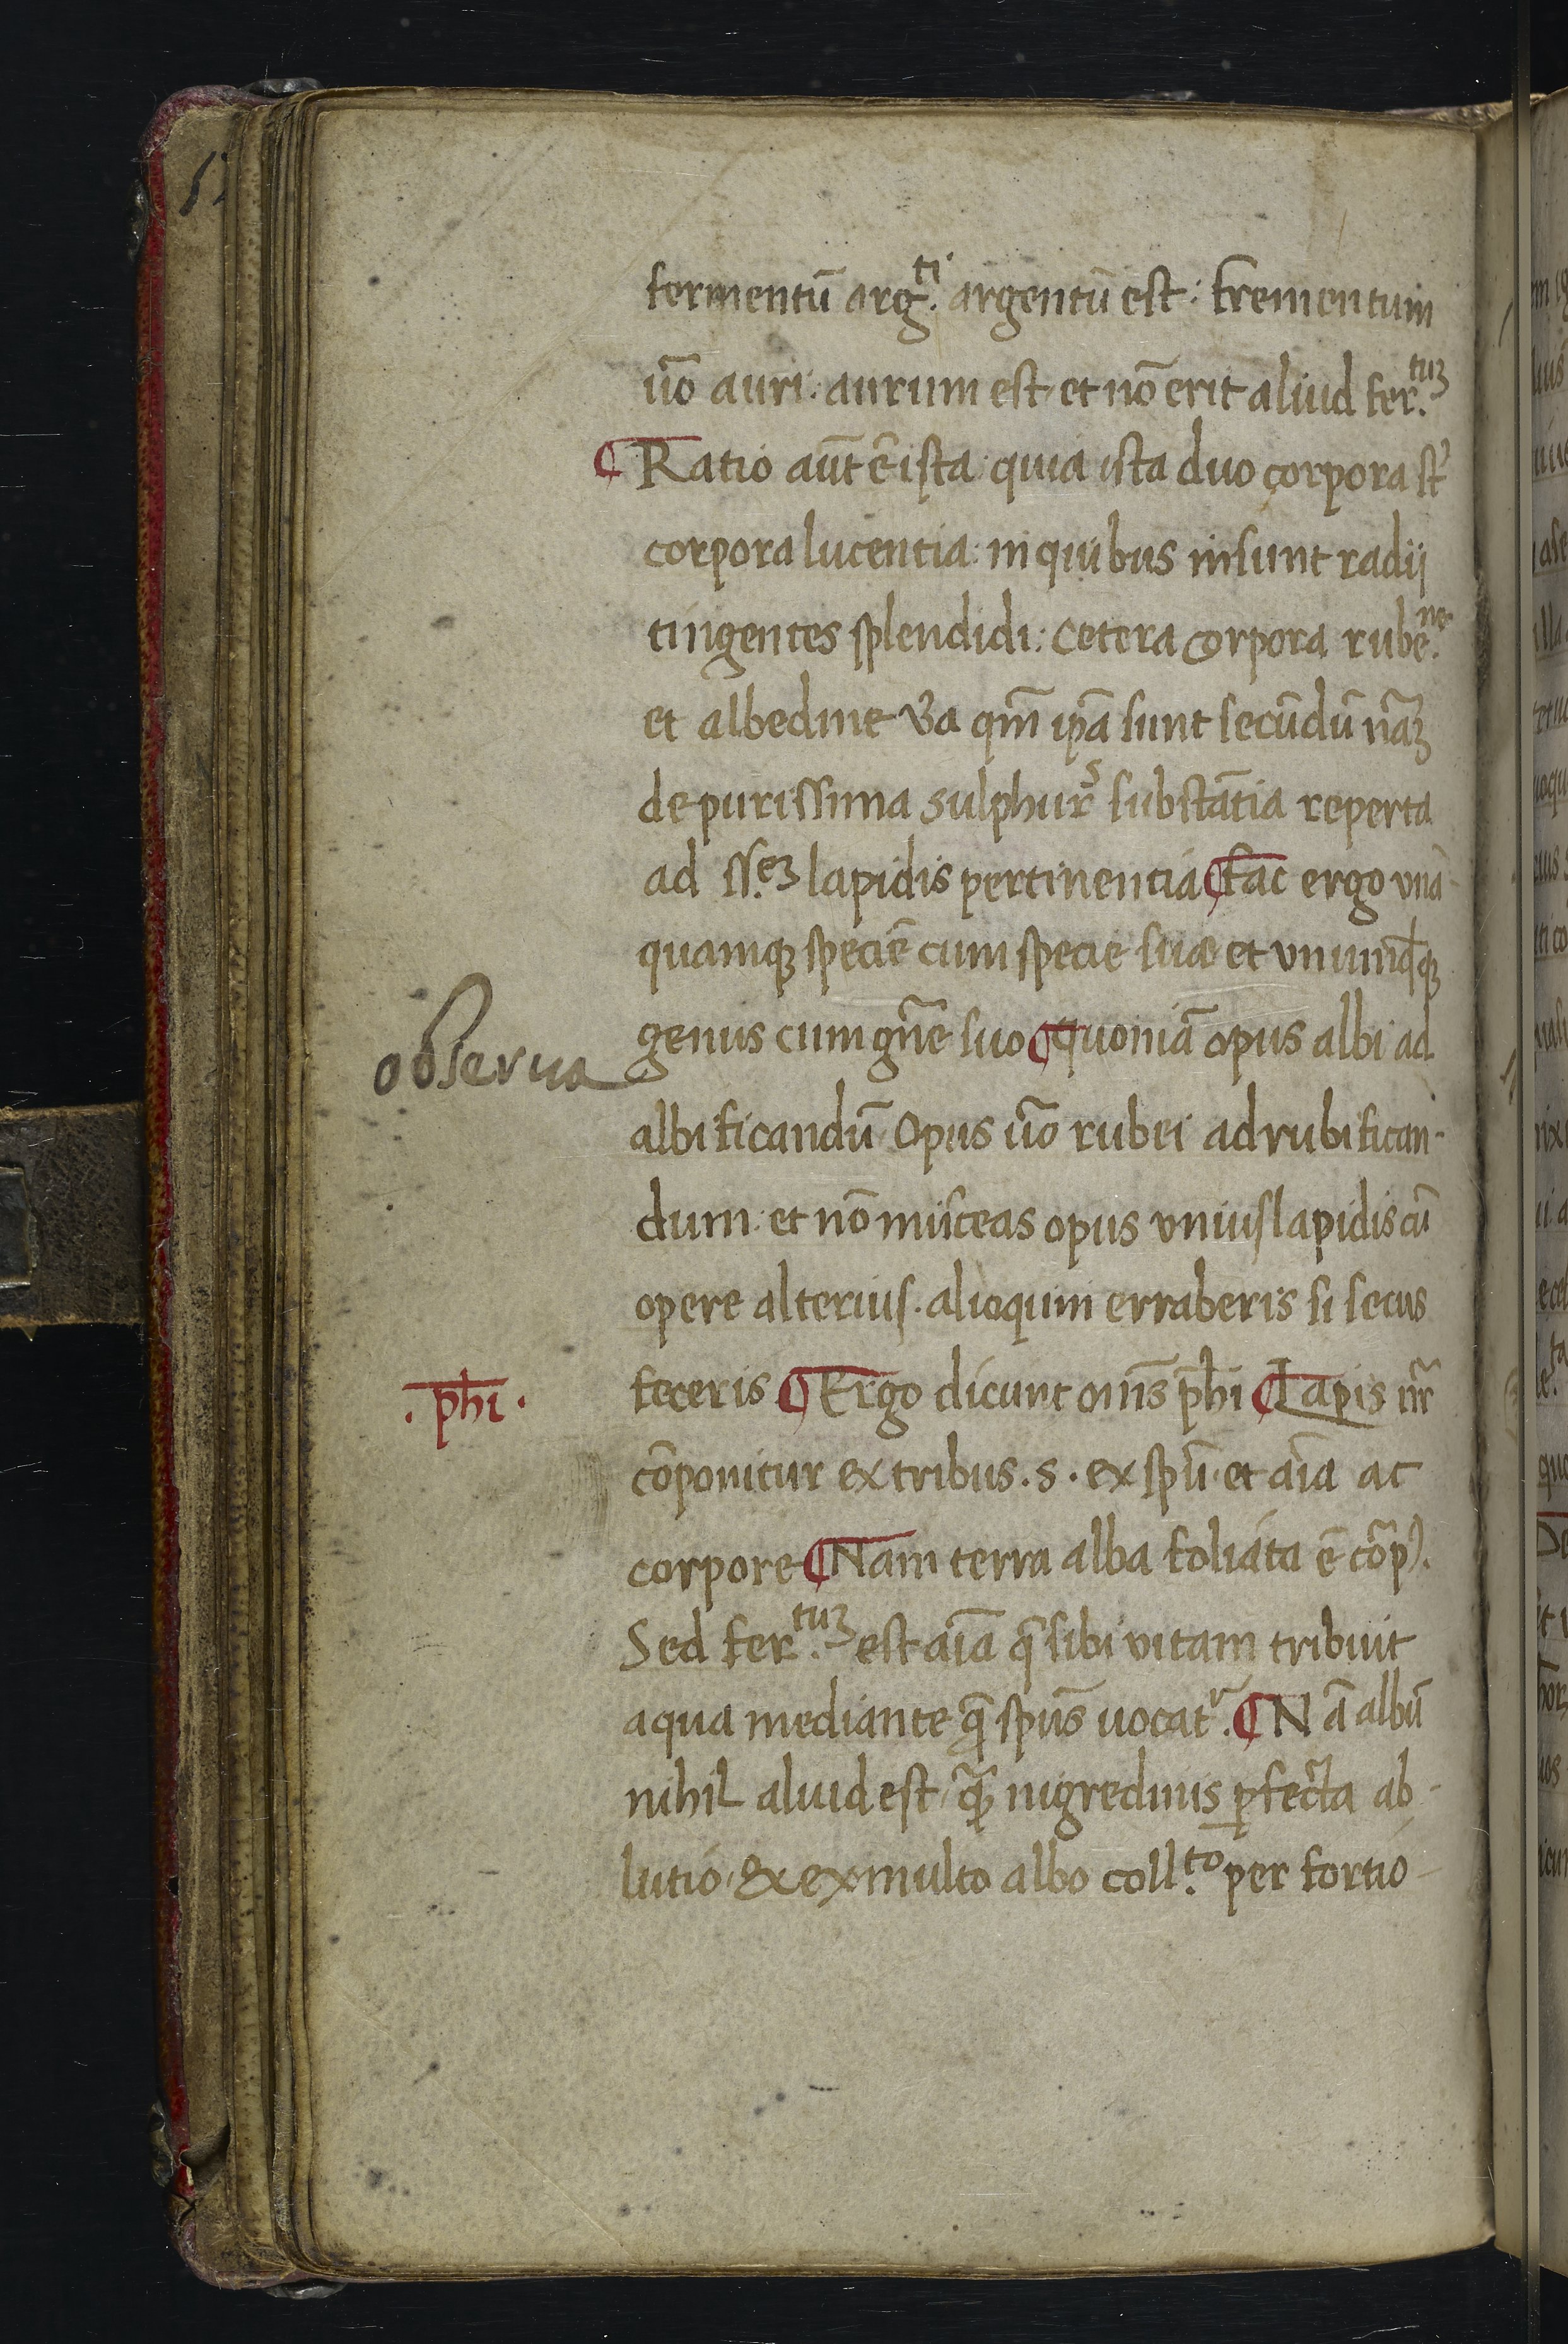 fermentū arg.ti argentū est: frementum
ūo auri: aurum est et nō erit aliud fer.tuꝫ
¶ Ratio aūt ē ista quia ista duo corpora st̄
corpora lucentia: in quibus insunt radij
tingentes splendidi: Cetera corpora rube.ne
et albedine qm̄ ip̄a sunt secūdū nāꝫ
de purissima sulphurs substātia reperta
ad lapidis pertinentia ¶ fac ergo vnā
quamqꝫ speciē cum specie sua et vnumq̄qꝫ
observa
genus cum gn̄e suo ¶ Quoniā opus albi ad
albificandū Opus ūo rubei ad rubifican-
dum: et nō misceas opus vnius lapidis cū
opere alterius. alioquin erraberis si secus
. phi .
feceris ¶ Ergo dicunt om̄s ph̄i ¶ Lapis nr̄
cōponitur ex tribus . s . ex spū et aīa ac
corpore ¶ Nam terra alba foliata ē
Sed fer.tuꝫ est aīa q̄ sibi vitam tribuit
aqua mediante q̄ spūs uocatr. ¶ Nā albū
nihil aliud est quā nigredinis ꝑfecta ab-
lutio. Et ex multo albo coll.to per fortio-